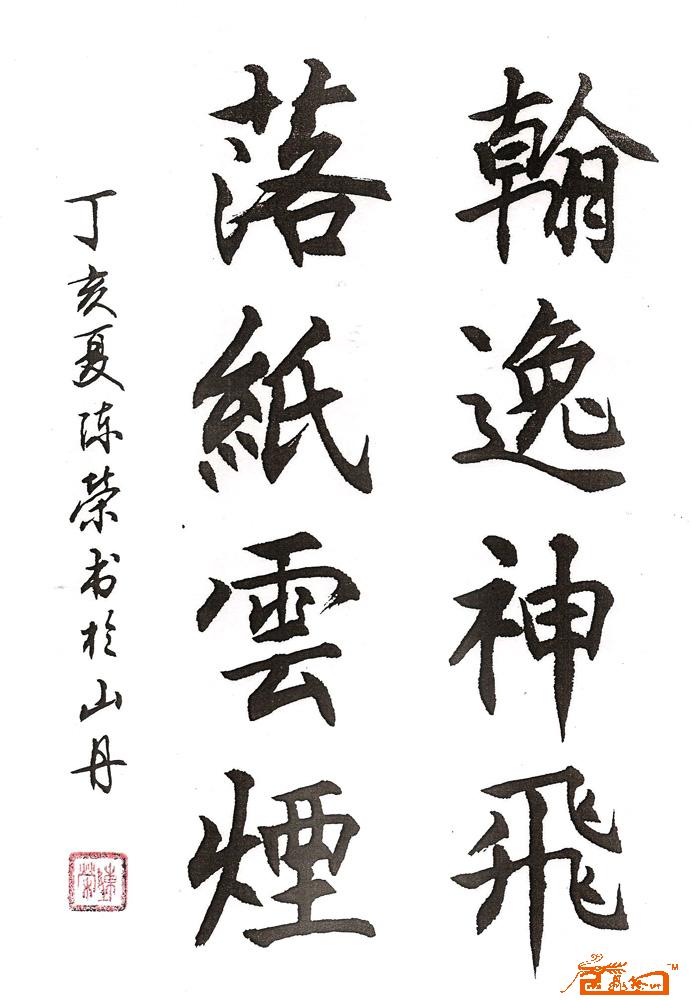 翰逸神飛
落紙雲煙
丁亥夏陈荣书於山丹